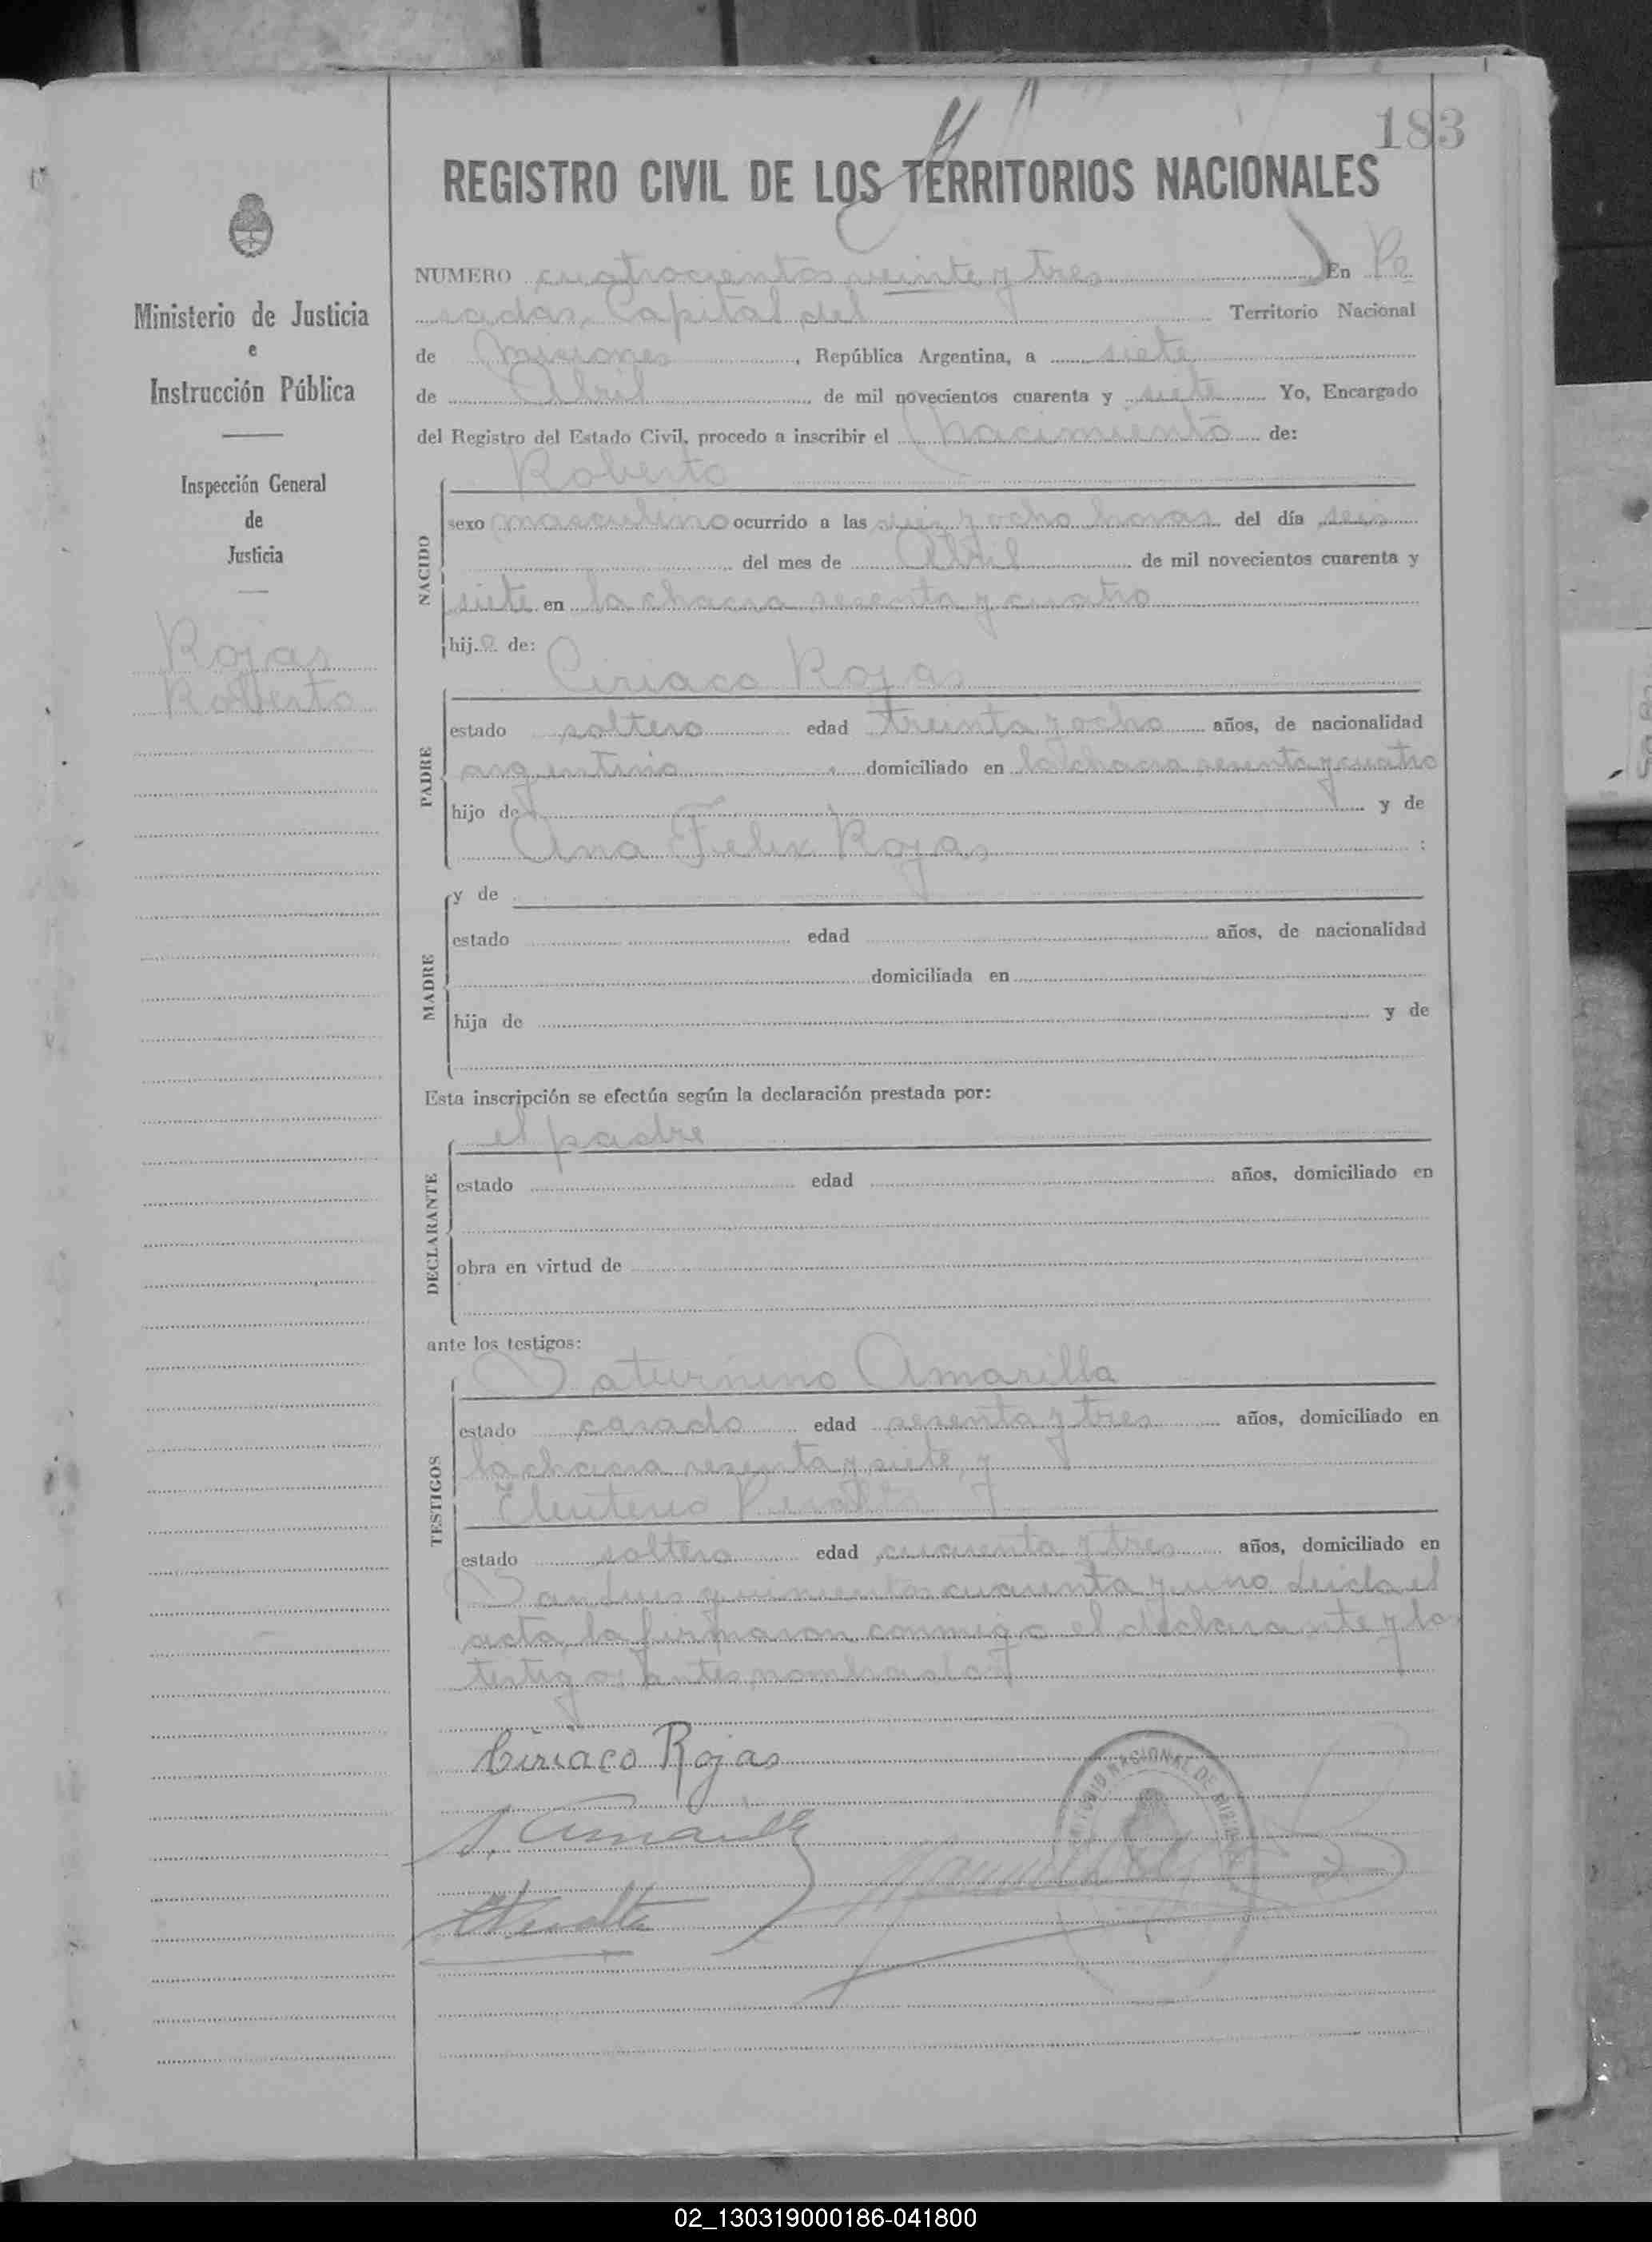 183
REGISTRO CIVIL DE LOS TERRITORIOS NACIONALES
Ministerio de Justicia
e
Instrucción Pública
Inspección General
de
Justicia
Rojas
Roberto
NUMERO cuatrocientos veinte y tres En Po
sadas, Capital del Territorio Nacional
de Misiones, República Argentina, a siete
de Abril de mil novecientos cuarenta y siete Yo, Encargado
del Registro del Estado Civil, procedo a inscribir el nacimiento de:
Roberto
NACIDO
sexo masculino ocurrido a las y ocho horas del día seis
del mes de Abril de mil novecientos cuarenta y
siete en la chacra sesenta y cuatro
hijo de:
Ciriaco Rojas
PADRE
estado soltero edad treinta y ocho años, de nacionalidad
argentina domiciliado en la chacra sesenta y cuatro
hijo de y de
Ana Felix Rojas :
MADRE
y de
estado edad años, de nacionalidad
domiciliada en
hija de y de
Esta inscripción se efectúa según la declaración prestada por:
el padre
DECLARANTE
estado edad años, domiciliado en
obra en virtud de
ante los testigos:
Saturnino Amarilla
TESTIGOS
estado casado edad sesenta y tres años, domiciliado en
la chacra sesenta y siete, y
Eleuterio Peralta
estado soltero edad cuarenta y tres años, domiciliado en
San Luis quinientos cuarenta y uno. Leída el
acta, la firmaron conmigo el declarante y los
testigos antes nombrados
Ciriaco Rojas
S. Amarilla
E Peralta
NACIONAL DE
02_130319000186-041800